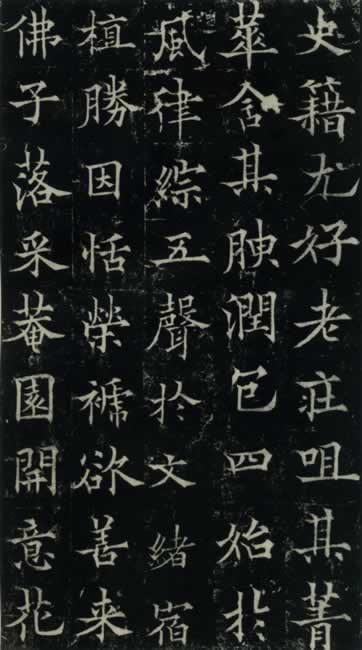 史籍尤好老莊咀其菁
華含其腴潤包四始於
風律綜五聲於文緒宿
植勝因恬榮褫欲善来
佛子落采菴園開意花